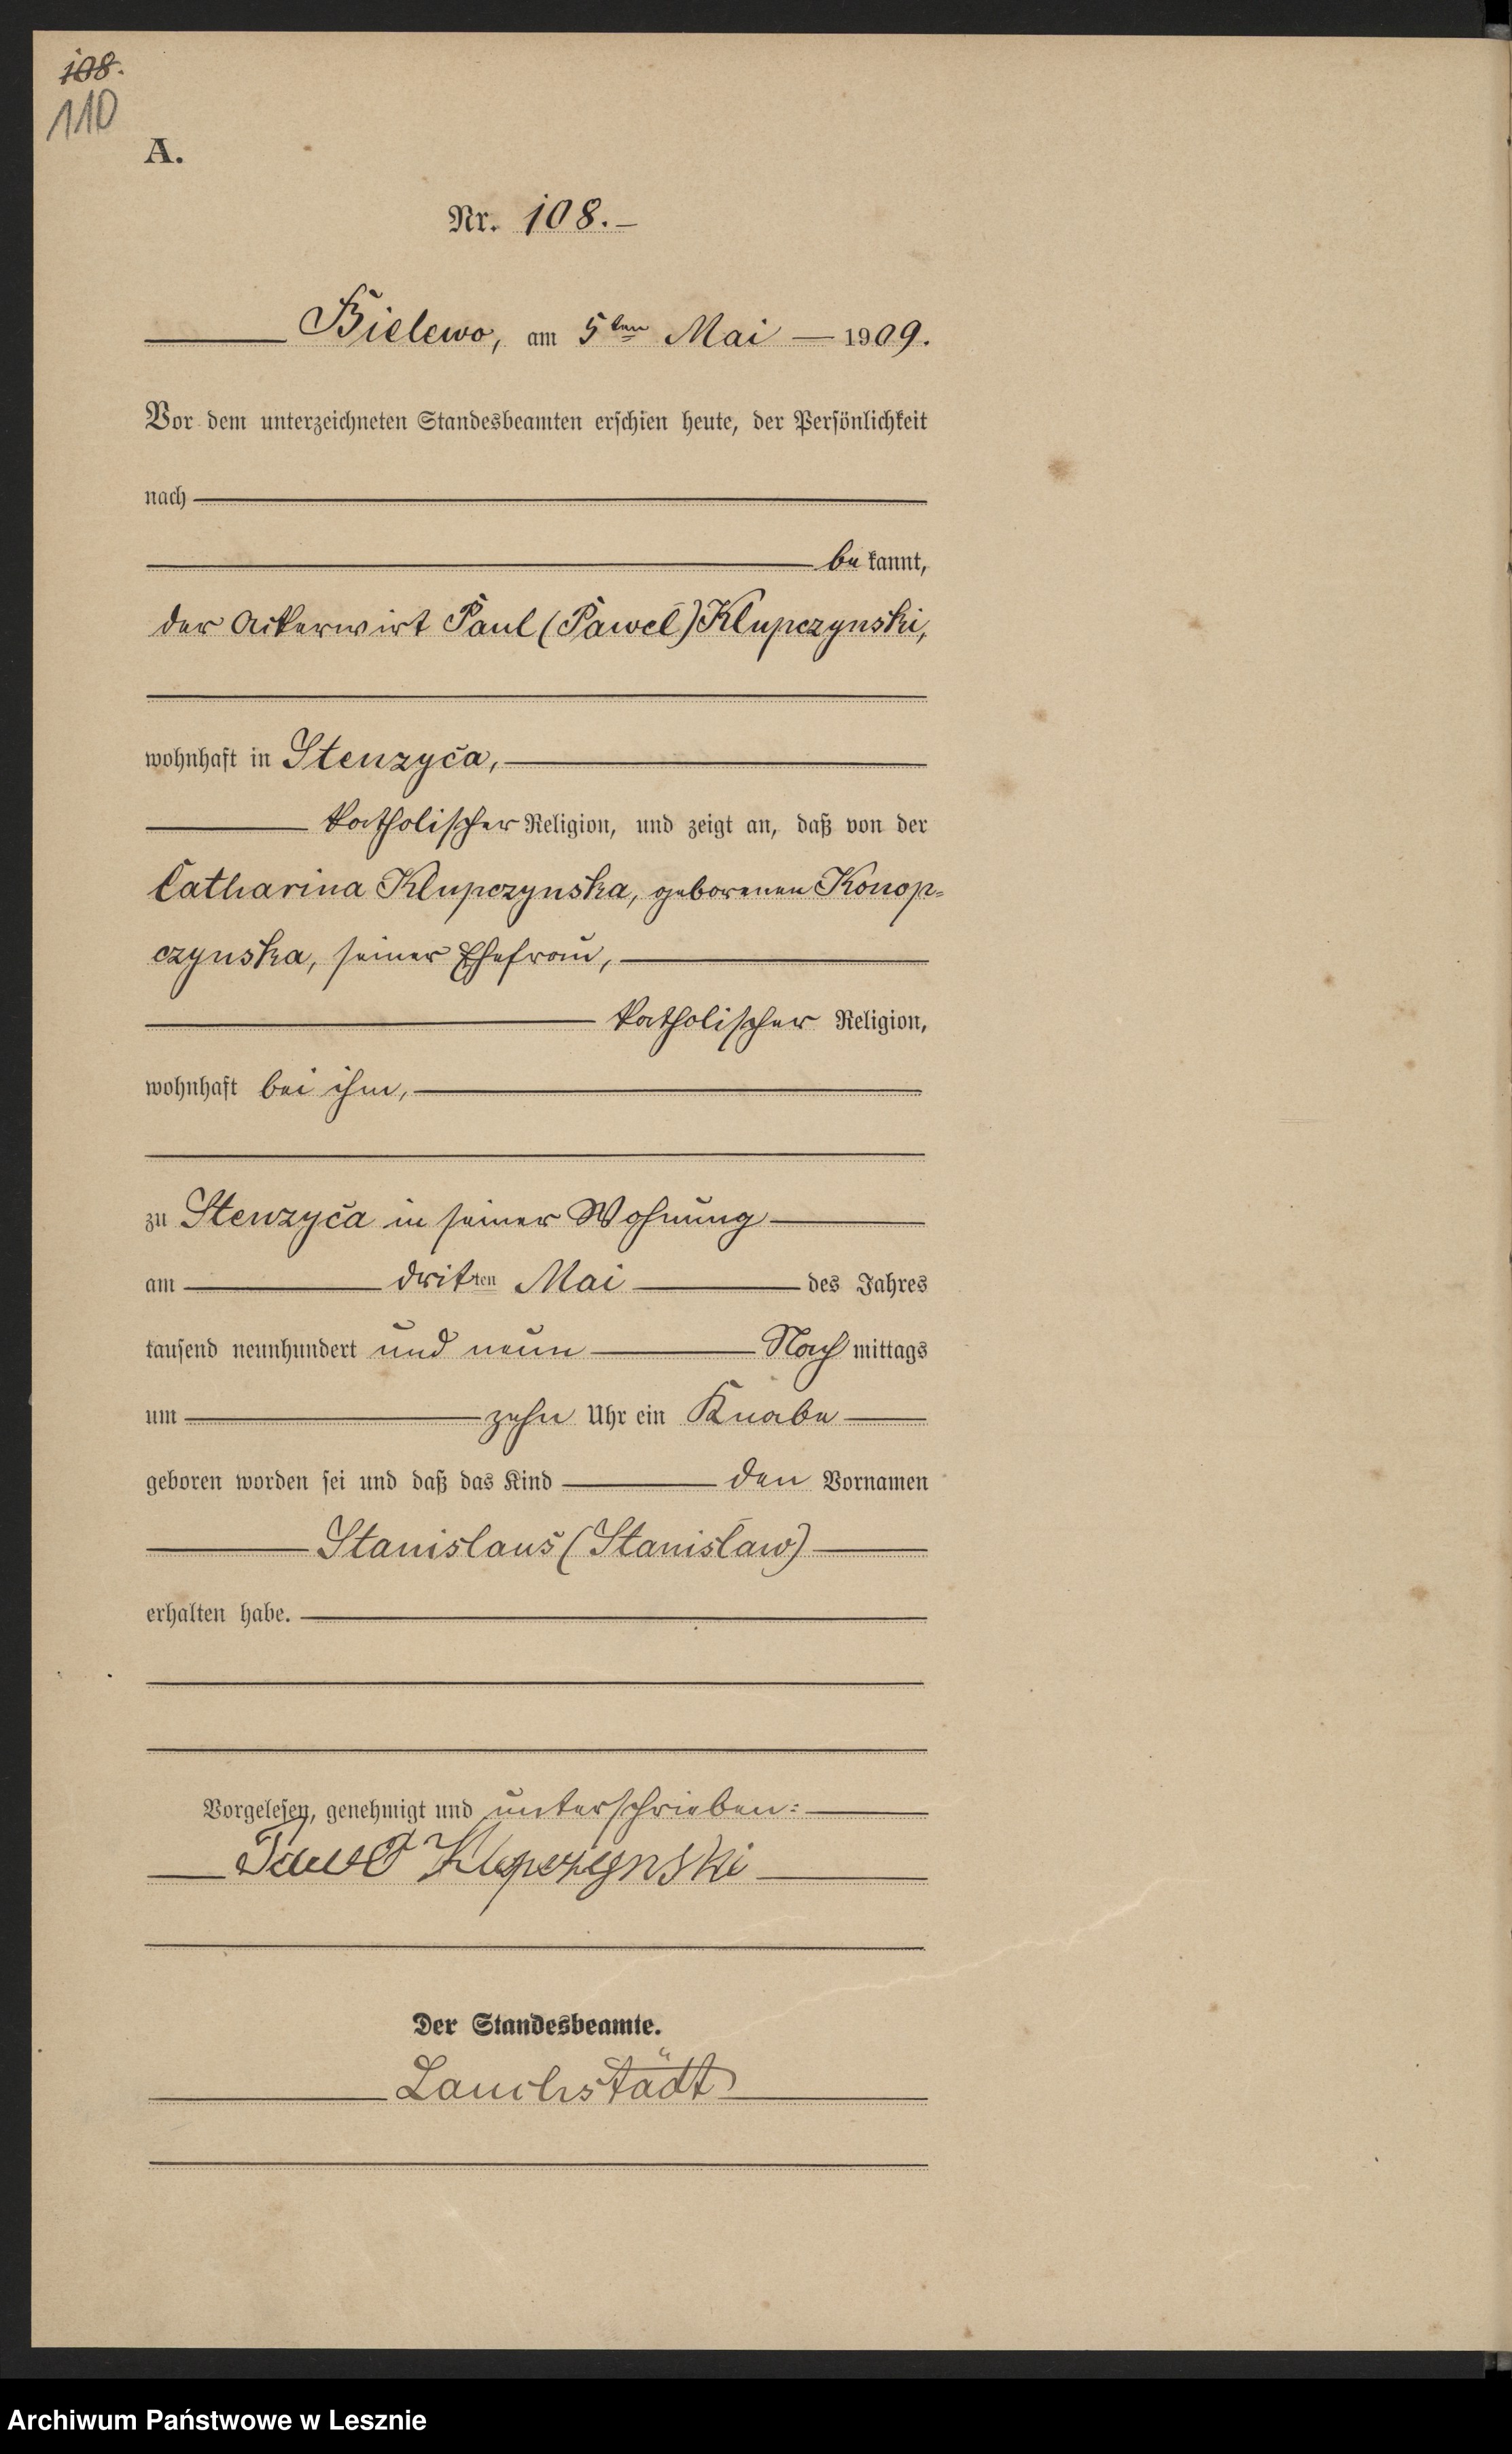 108.
110
A.
Nr. 108.–
Bielewo, am 5ten Mai 1909.
Vor dem unterzeichneten Standesbeamten erschien heute, der Persönlichkeit
nach
bekannt,
der Ackerwirt Paul (Paweł) Klupczynski,
wohnhaft in Stenzyca,
katholischer Religion, und zeigt an, daß von der
Catharina Klupczynska, geborenen Konop=
czynska, seiner Ehefrau,
katholischer Religion,
wohnhaft bei ihm,
zu Stenzyca in seiner Wohnung
am dritten Mai des Jahres
tausend neunhundert und neun Nachmittags
um zehn Uhr ein Knabe
geboren worden sei und daß das Kind den Vornamen
Stanislaus (Stanisław)
erhalten habe.
Vorgelesen, genehmigt und unterschrieben:
Paweł Klupczynski
Der Standesbeamte.
Lauchstädt
Archiwum Państwowe w Lesznie